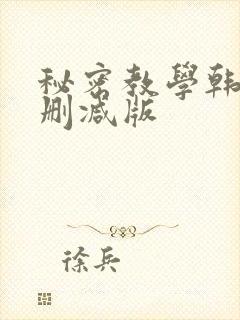 秘密教學韩
删减版
徐兵